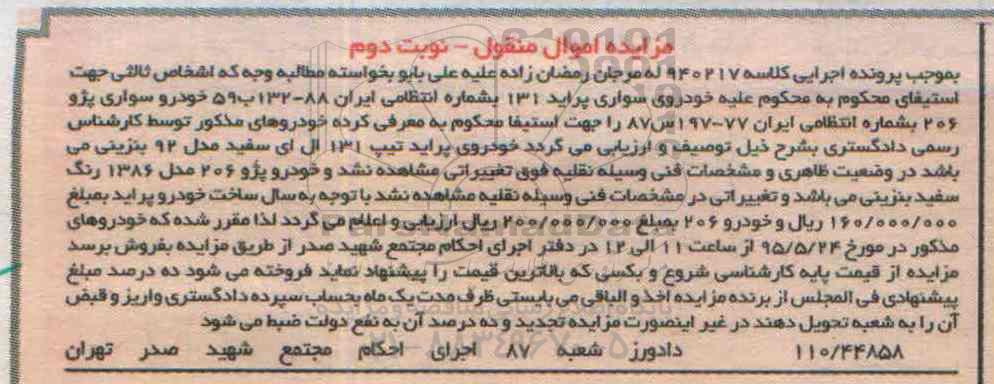 مزایده اموال منقول - نوبت دوم
بموجب پرونده اجرایی کلاسه ۹۴۰۲۱۷ له مرجان رمضان زاده علیه علی بابو بخواسته مطالبه وجه که اشخاص ثالثی جهت
استیفای محکوم به محکوم علیه خودروی سواری پراید ۱۳۱ بشماره انتظامی ایران ۸۸-۱۳۲ب۵۹ خودرو سواری پژو
۲۰۶ بشماره انتظامی ایران ۷۷-۱۹۷س۸۷ را جهت استیفا محکوم به معرفی کرده خودروهای مذکور توسط کارشناس
رسمی دادگستری بشرح ذیل توصیف و ارزیابی می گردد خودروی پراید تیپ ۱۳۱ ال ای سفید مدل ۹۲ بنزینی می
باشد در وضعیت ظاهری و مشخصات فنی وسیله نقلیه فوق تغییراتی مشاهده نشد و خودرو پژو ۲۰۶ مدل ۱۳۸۶ رنگ
سفید بنزینی می باشد و تغییراتی در مشخصات فنی وسیله نقلیه مشاهده نشد با توجه به سال ساخت خودرو پراید بمبلغ
۱۶۰/۰۰۰/۰۰۰ ریال و خودرو ۲۰۶ بمبلغ ۲۰۰/۰۰۰/۰۰۰ ریال ارزیابی و اعلام می گردد لذا مقرر شده که خودروهای
مذکور در مورخ ۹۵/۵/۲۴ از ساعت ۱۱ الی ۱۲ در دفتر اجرای احکام مجتمع شهید صدر از طریق مزایده بفروش برسد
مزایده از قیمت پایه کارشناسی شروع و بکسی که بالاترین قیمت را پیشنهاد نماید فروخته می شود ده درصد مبلغ
پیشنهادی فی المجلس از برنده مزایده اخذ و الباقی می بایستی ظرف مدت یک ماه بحساب سپرده دادگستری واریز و قبض
آن را به شعبه تحویل دهند در غیر اینصورت مزایده تجدید و ده درصد آن به نفع دولت ضبط می شود
۱۱۰/۴۴۸۵۸ دادورز شعبه ۸۷ اجرای احکام مجتمع شهید صدر تهران